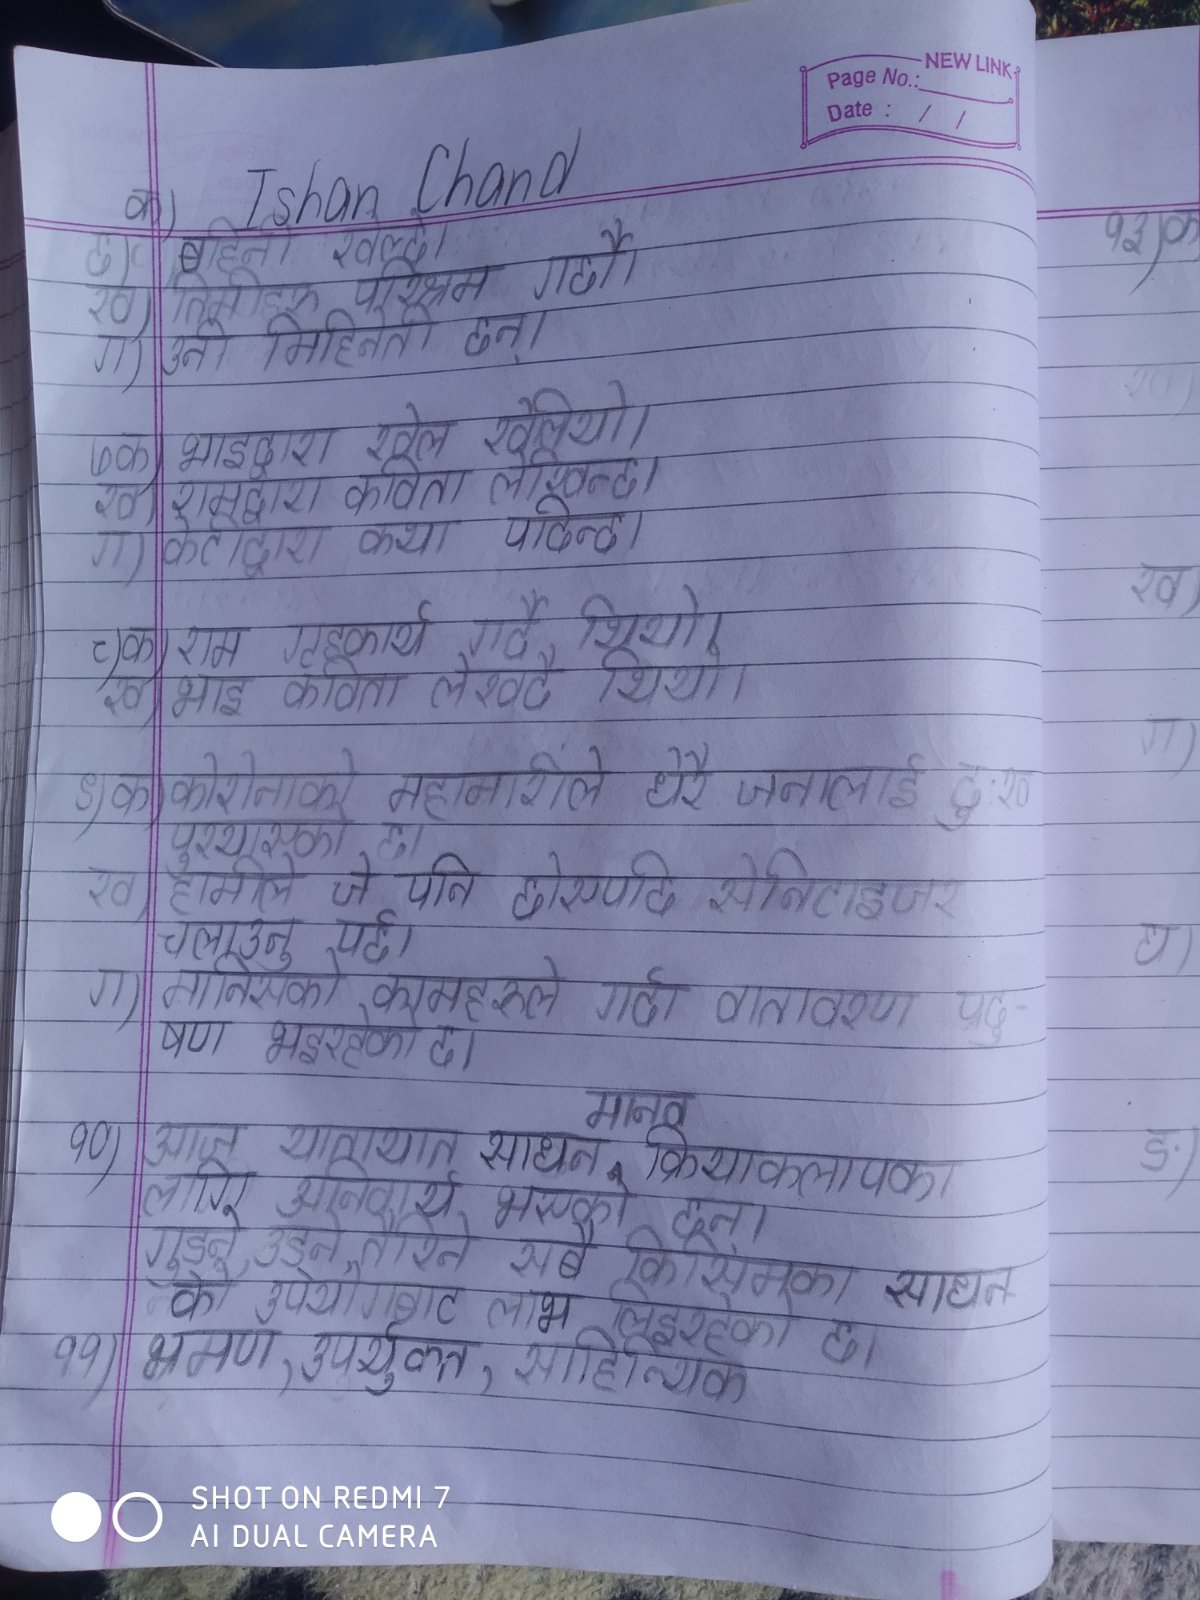 NEW LINK
Page No.:
Date : / /
क) Ishan Chand
६) बहिनी खेल्छे।
ख) तिमीहरू परिश्रम गर्छौ।
ग) उनी मिहिनेती छन्।
७क) भाइद्वारा खेल खेलियो।
ख) रामद्वारा कविता लेखिन्छ।
ग) केटीद्वारा कथा पढिन्छ।
८)क) राम गृहकार्य गर्दै थियो।
ख) भाइ कविता लेख्दै थियो।
९)क) कोरोनाको महामारीले धेरै जनालाई दुःख
पुर्‍याएको छ।
ख) हामीले जे पनि छोएपछि सेनिटाइजर
चलाउनु पर्छ।
ग) मानिसको कामहरूले गर्दा वातावरण प्रदु-
षण भइरहेको छ।
मानव
१०) आज यातायात साधन क्रियाकलापका
लागि अनिवार्य भएको छन्।
गुड्ने, उड्ने, तैरिने सबै किसिमका साधन
को उपयोगबाट लाभ लिइरहेको छ।
११) भ्रमण, उपर्युक्त, साहित्यिक
१३)क
ख)
ग)
घ)
ङ)
SHOT ON REDMI 7
AI DUAL CAMERA